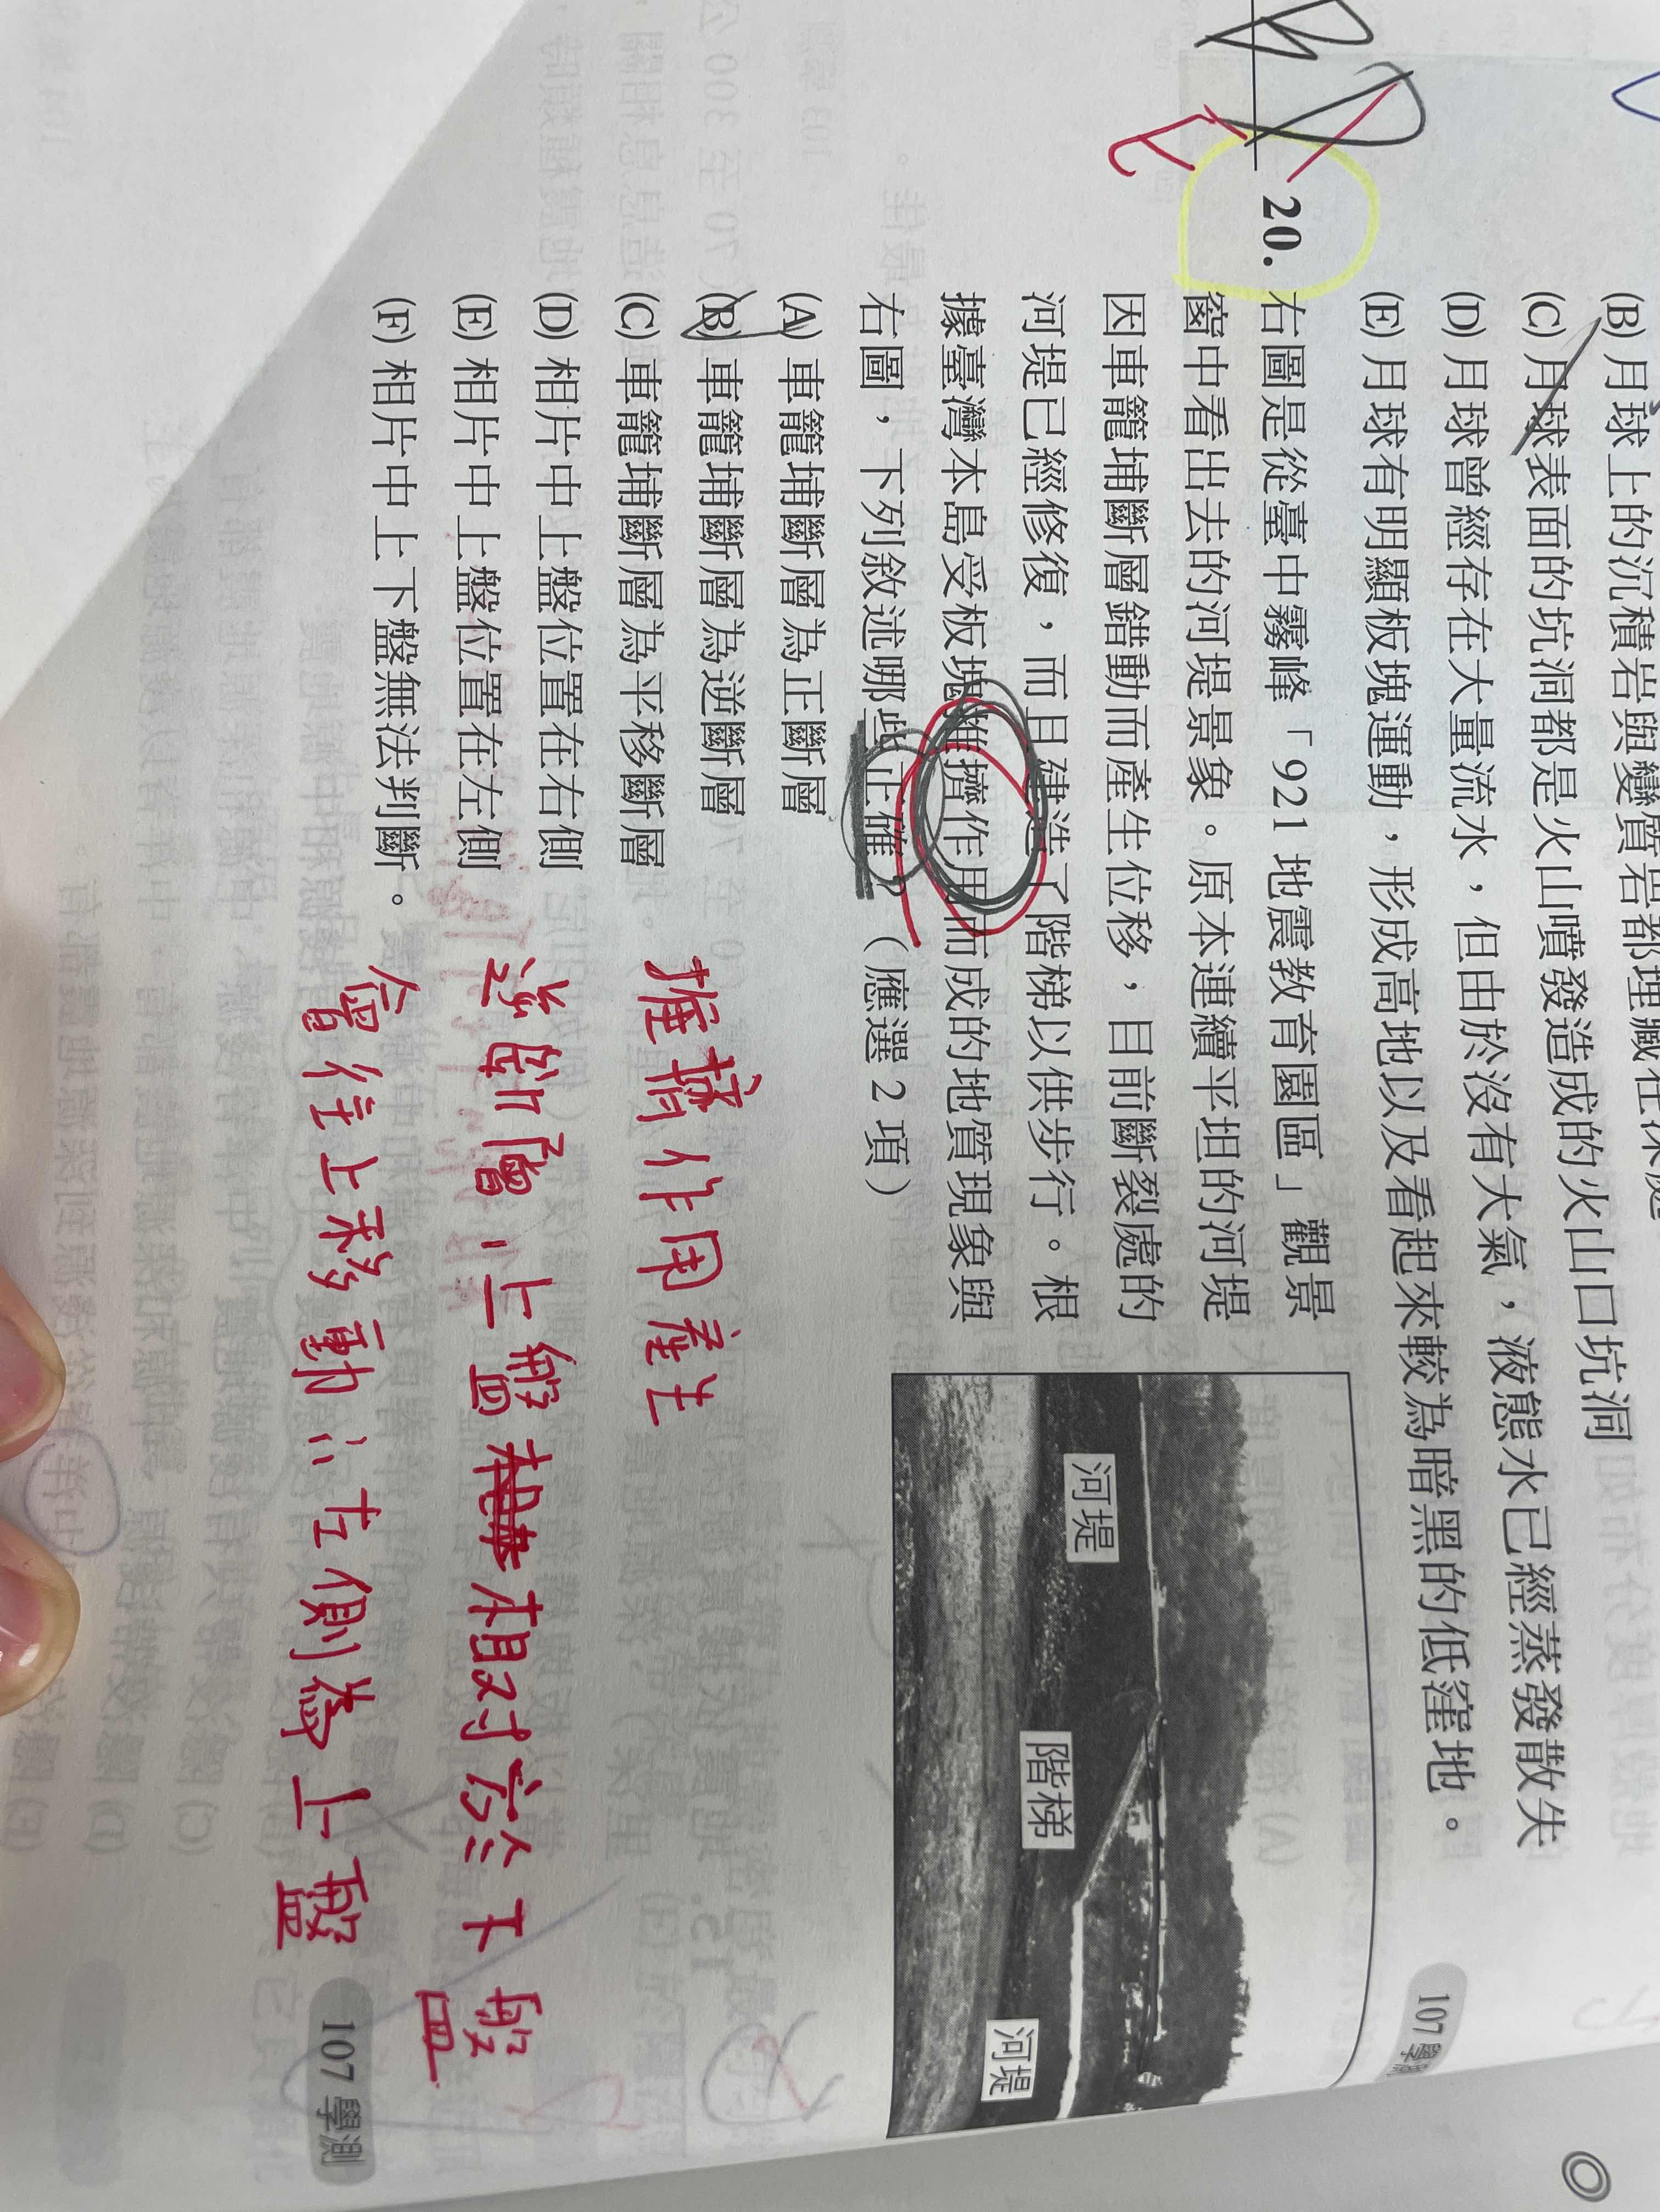 (B) 月球上的沉積岩與變質岩都埋藏在深處
(C) 月球表面的坑洞都是火山噴發造成的火山口坑洞
(D) 月球曾經存在大量流水，但由於沒有大氣，液態水已經蒸發散失
(E) 月球有明顯板塊運動，形成高地以及看起來較為暗黑的低窪地。
107 學測
20. 右圖是從臺中霧峰「921 地震教育園區」觀景
窗中看出去的河堤景象。原本連續平坦的河堤
因車籠埔斷層錯動而產生位移，目前斷裂處的
河堤已經修復，而且建造了階梯以供步行。根
據臺灣本島受板塊推擠作用而成的地質現象與
右圖，下列敘述哪些正確？（應選 2 項）
(A) 車籠埔斷層為正斷層
(B) 車籠埔斷層為逆斷層
(C) 車籠埔斷層為平移斷層
(D) 相片中上盤位置在右側
(E) 相片中上盤位置在左側
(F) 相片中上下盤無法判斷。
河堤
階梯
河堤
推擠作用產生
逆斷層，上盤相對於下盤
會往上移動∴左側為上盤
107 學測